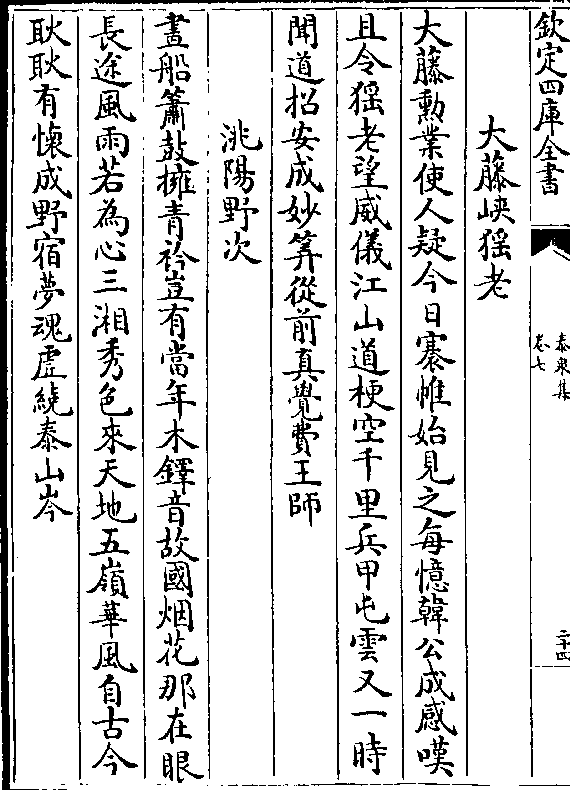 欽定四庫全書
泰泉集
卷七
二十四
大藤峽猺老
大藤勲業使人疑今日褰帷始見之每憶韓公成感嘆
且令猺老望威儀江山道梗空千里兵甲屯雲又一時
聞道招安成妙筭從前真覺費王師
洮陽野次
畫船簫鼓擁青衿豈有當年木鐸音故國烟花那在眼
長途風雨若為心三湘秀色來天地五嶺華風自古今
耿耿有懷成野宿夢魂虛繞泰山岑